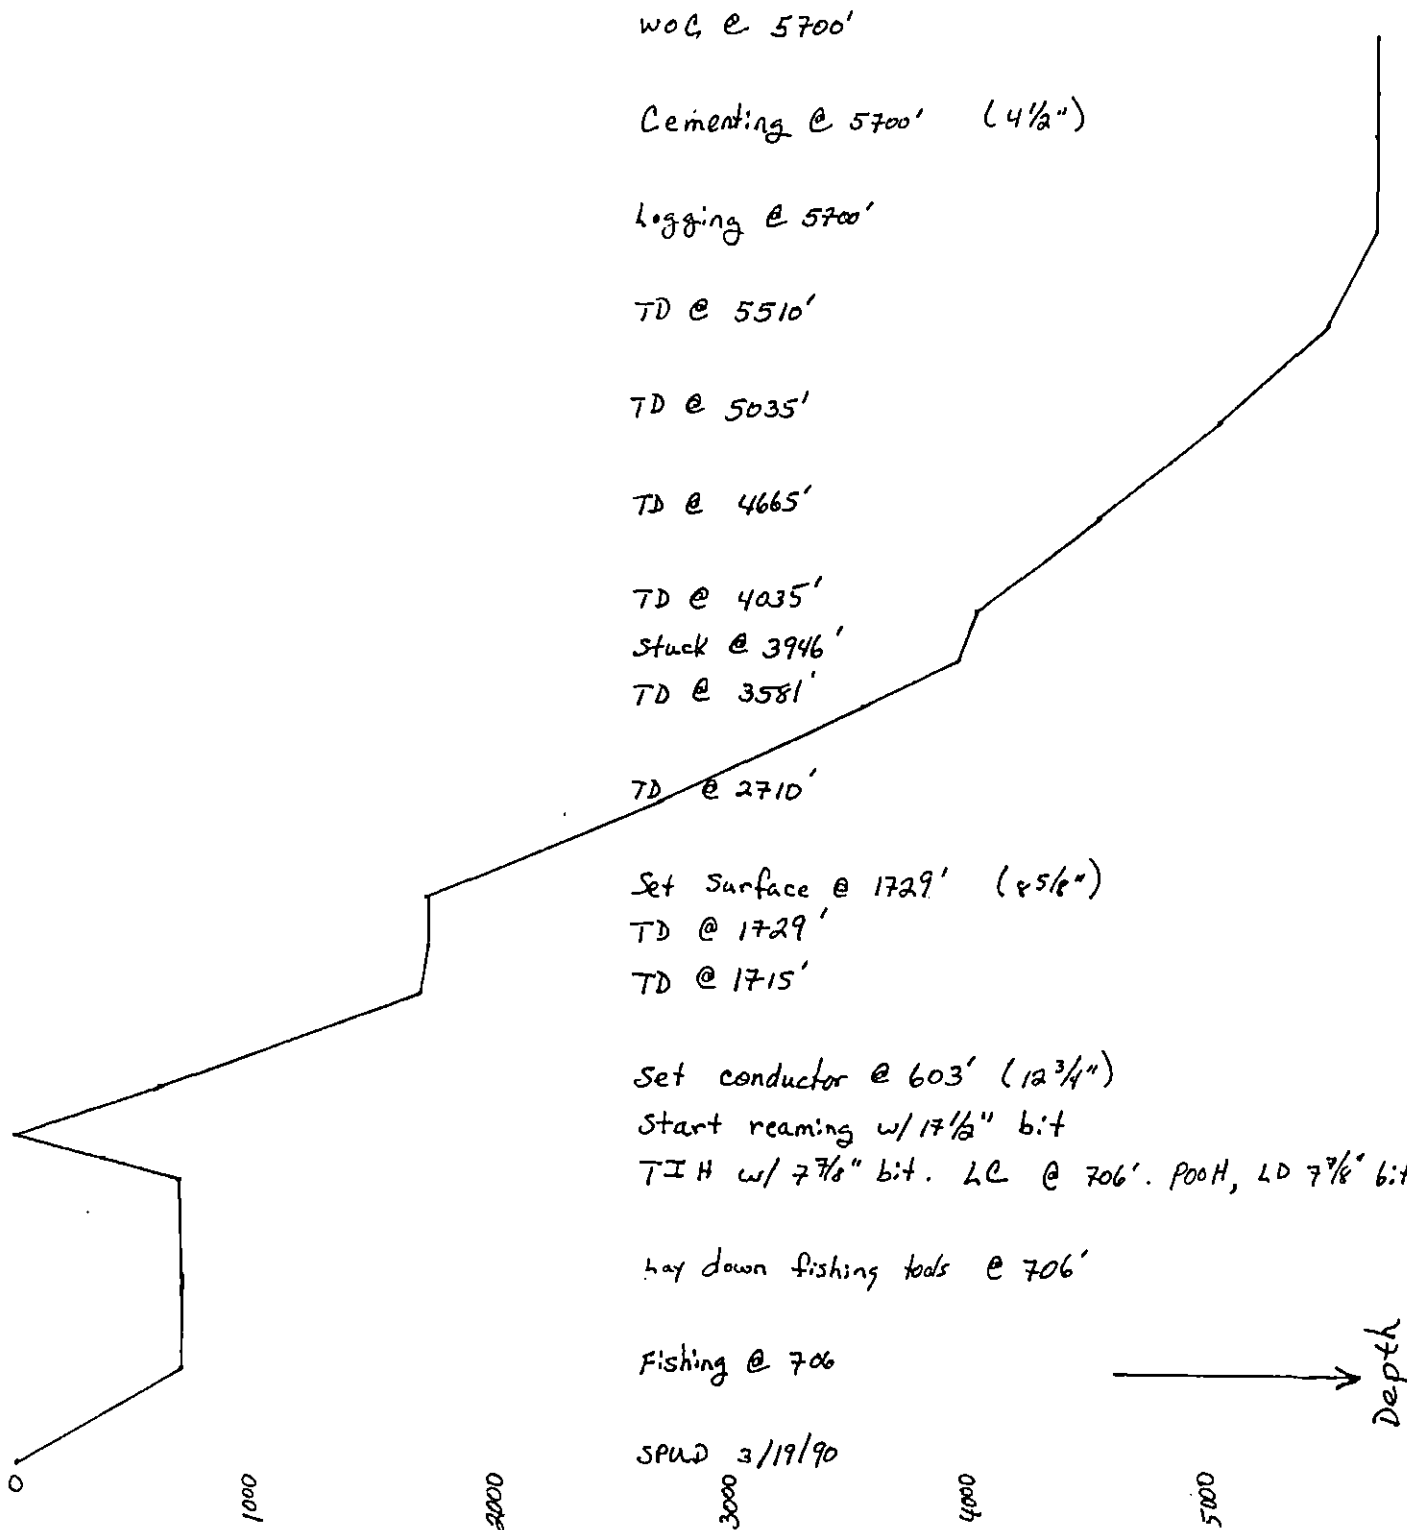 WOC @ 5700'
Cementing @ 5700' (4 1/2")
Logging @ 5700'
TD @ 5510'
TD @ 5035'
TD @ 4665'
TD @ 4035'
Stuck @ 3946'
TD @ 3581'
TD @ 2710'
Set Surface @ 1729' (8 5/8")
TD @ 1729'
TD @ 1715'
Set conductor @ 603' (12 3/4")
Start reaming w/ 17 1/2" bit
TIH w/ 7 7/8" bit. LC @ 706'. POOH, LD 7 7/8" bit
Lay down fishing tools @ 706'
Fishing @ 706
Depth
SPUD 3/19/90
0 1000 2000 3000 4000 5000